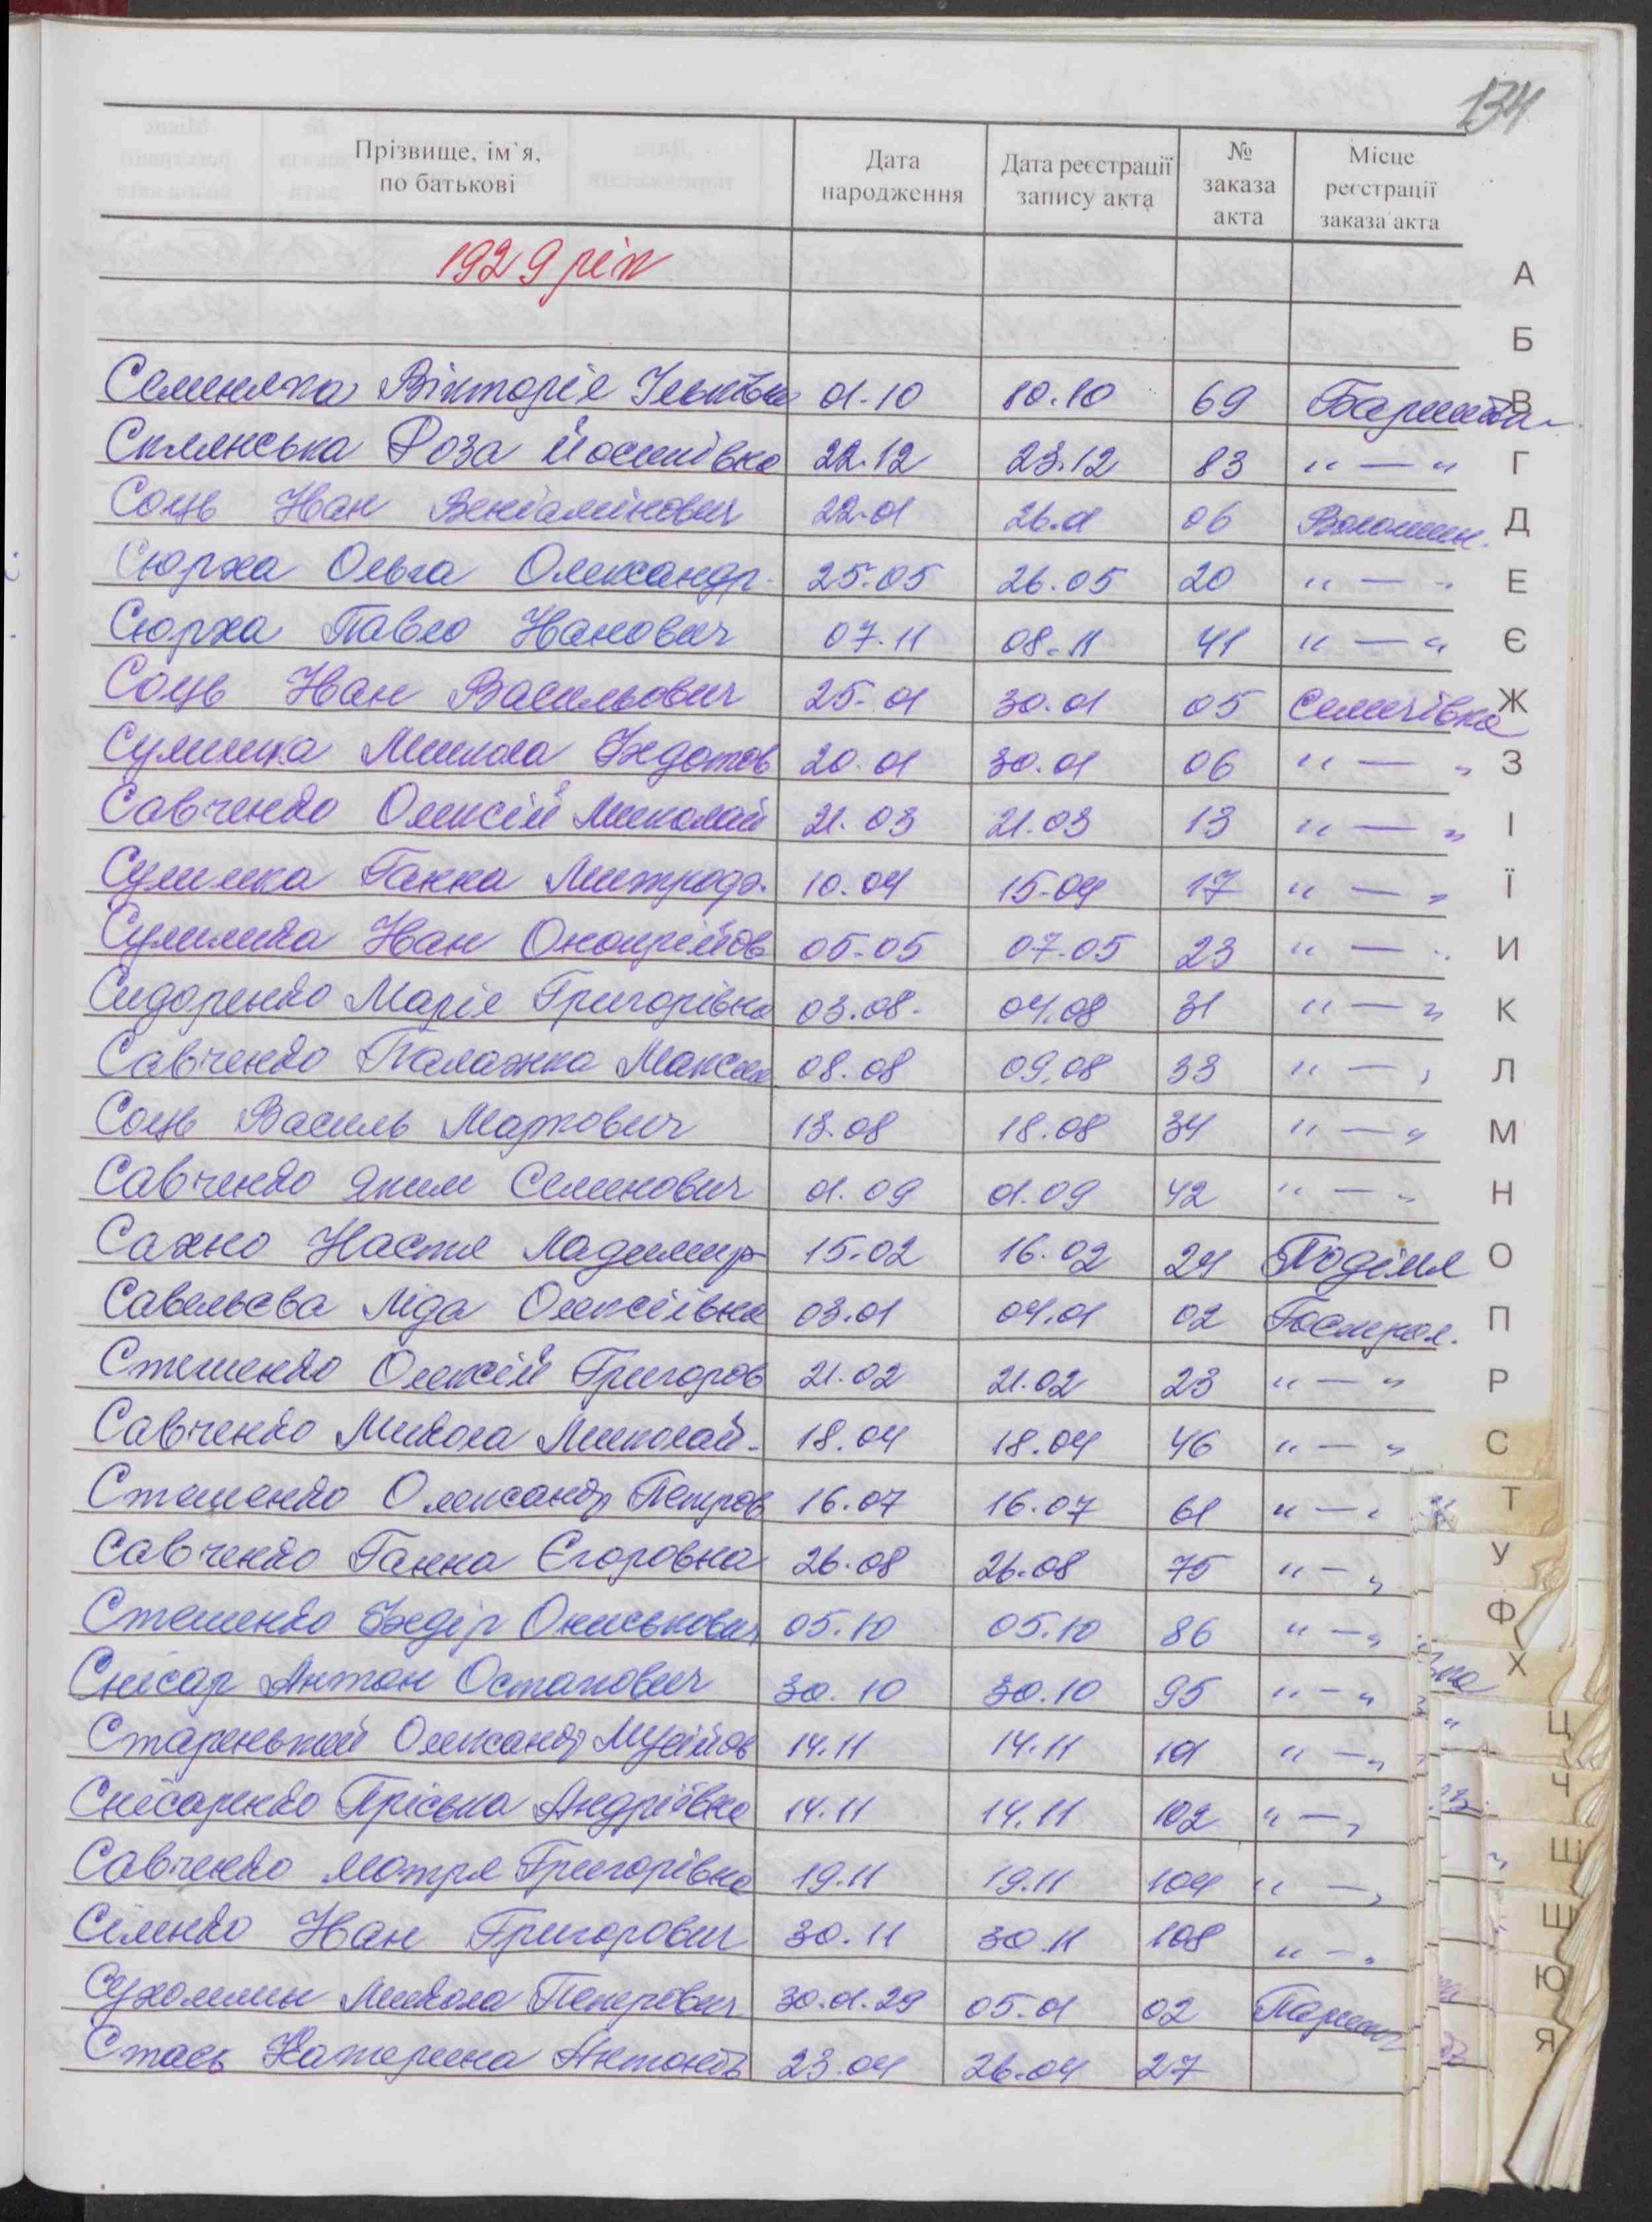 134
Прізвище, ім`я, по батькові | Дата народження | Дата реєстрації запису акта | № заказа акта | Місце реєстрації заказа акта
1929 рік
Семеняка Вікторія Ільківна 01.10 10.10 69 Баришівка
Склянська Роза Йосипівна 22.12 23.12 83 "—"
Соць Іван Веніамінович 22.01 26.01 06 Волошин.
Сюрха Ольга Олександр. 25.05 26.05 20 "—"
Сюрха Павло Іванович 07.11 08.11 41 "—"
Соць Іван Васильович 25.01 30.01 05 Селичівка
Сулимка Микола Федотов 20.01 30.01 06 "—"
Савченко Олексій Миколай 21.03 21.03 13 "—"
Сулимка Ганна Митрофа. 10.04 15.04 17 "—"
Сулимка Іван Онопрійов 05.05 07.05 23 "—"
Сидоренко Марія Григорівна 03.08. 04.08 31 "—"
Савченко Палажка Максим 08.08 09.08 33 "—"
Соць Василь Маркович 13.08 18.08 34 "—"
Савченко Яким Семенович 01.09 01.09 42 "—"
Сахно Настя Ладимир 15.02 16.02 24 Поділля
Савельєва Ліда Олексіївна 03.01 04.01 02 Пастирол.
Стешенко Олексій Григоров 21.02 21.02 23 "—"
Савченко Микола Миколай- 18.04 18.04 46 "—"
Стешенко Олександр Петров 16.07 16.07 61 "—"
Савченко Ганна Єгоровна 26.08 26.08 75 "—"
Стешенко Федір Ониськович 05.10 05.10 86 "—"
Снісар Антон Остапович 30.10 30.10 95 "—"
Старенький Олександр Мусійов 14.11 14.11 101 "—"
Снісаренко Пріська Андріївна 14.11 14.11 102 "—"
Савченко Мотря Григорівна 19.11 19.11 104 "—"
Сіленко Іван Григорович 30.11 30.11 108 "—"
Сухомлин Микола Петрович 30.01.29 05.01 02
Стась Катерина Антонів 23.04 26.04 27
А
Б
В
Г
Д
Е
Є
Ж
З
І
Ї
И
К
Л
М
Н
О
П
Р
С
Т
У
Ф
Х
Ц
Ч
Ш
Щ
Ю
Я